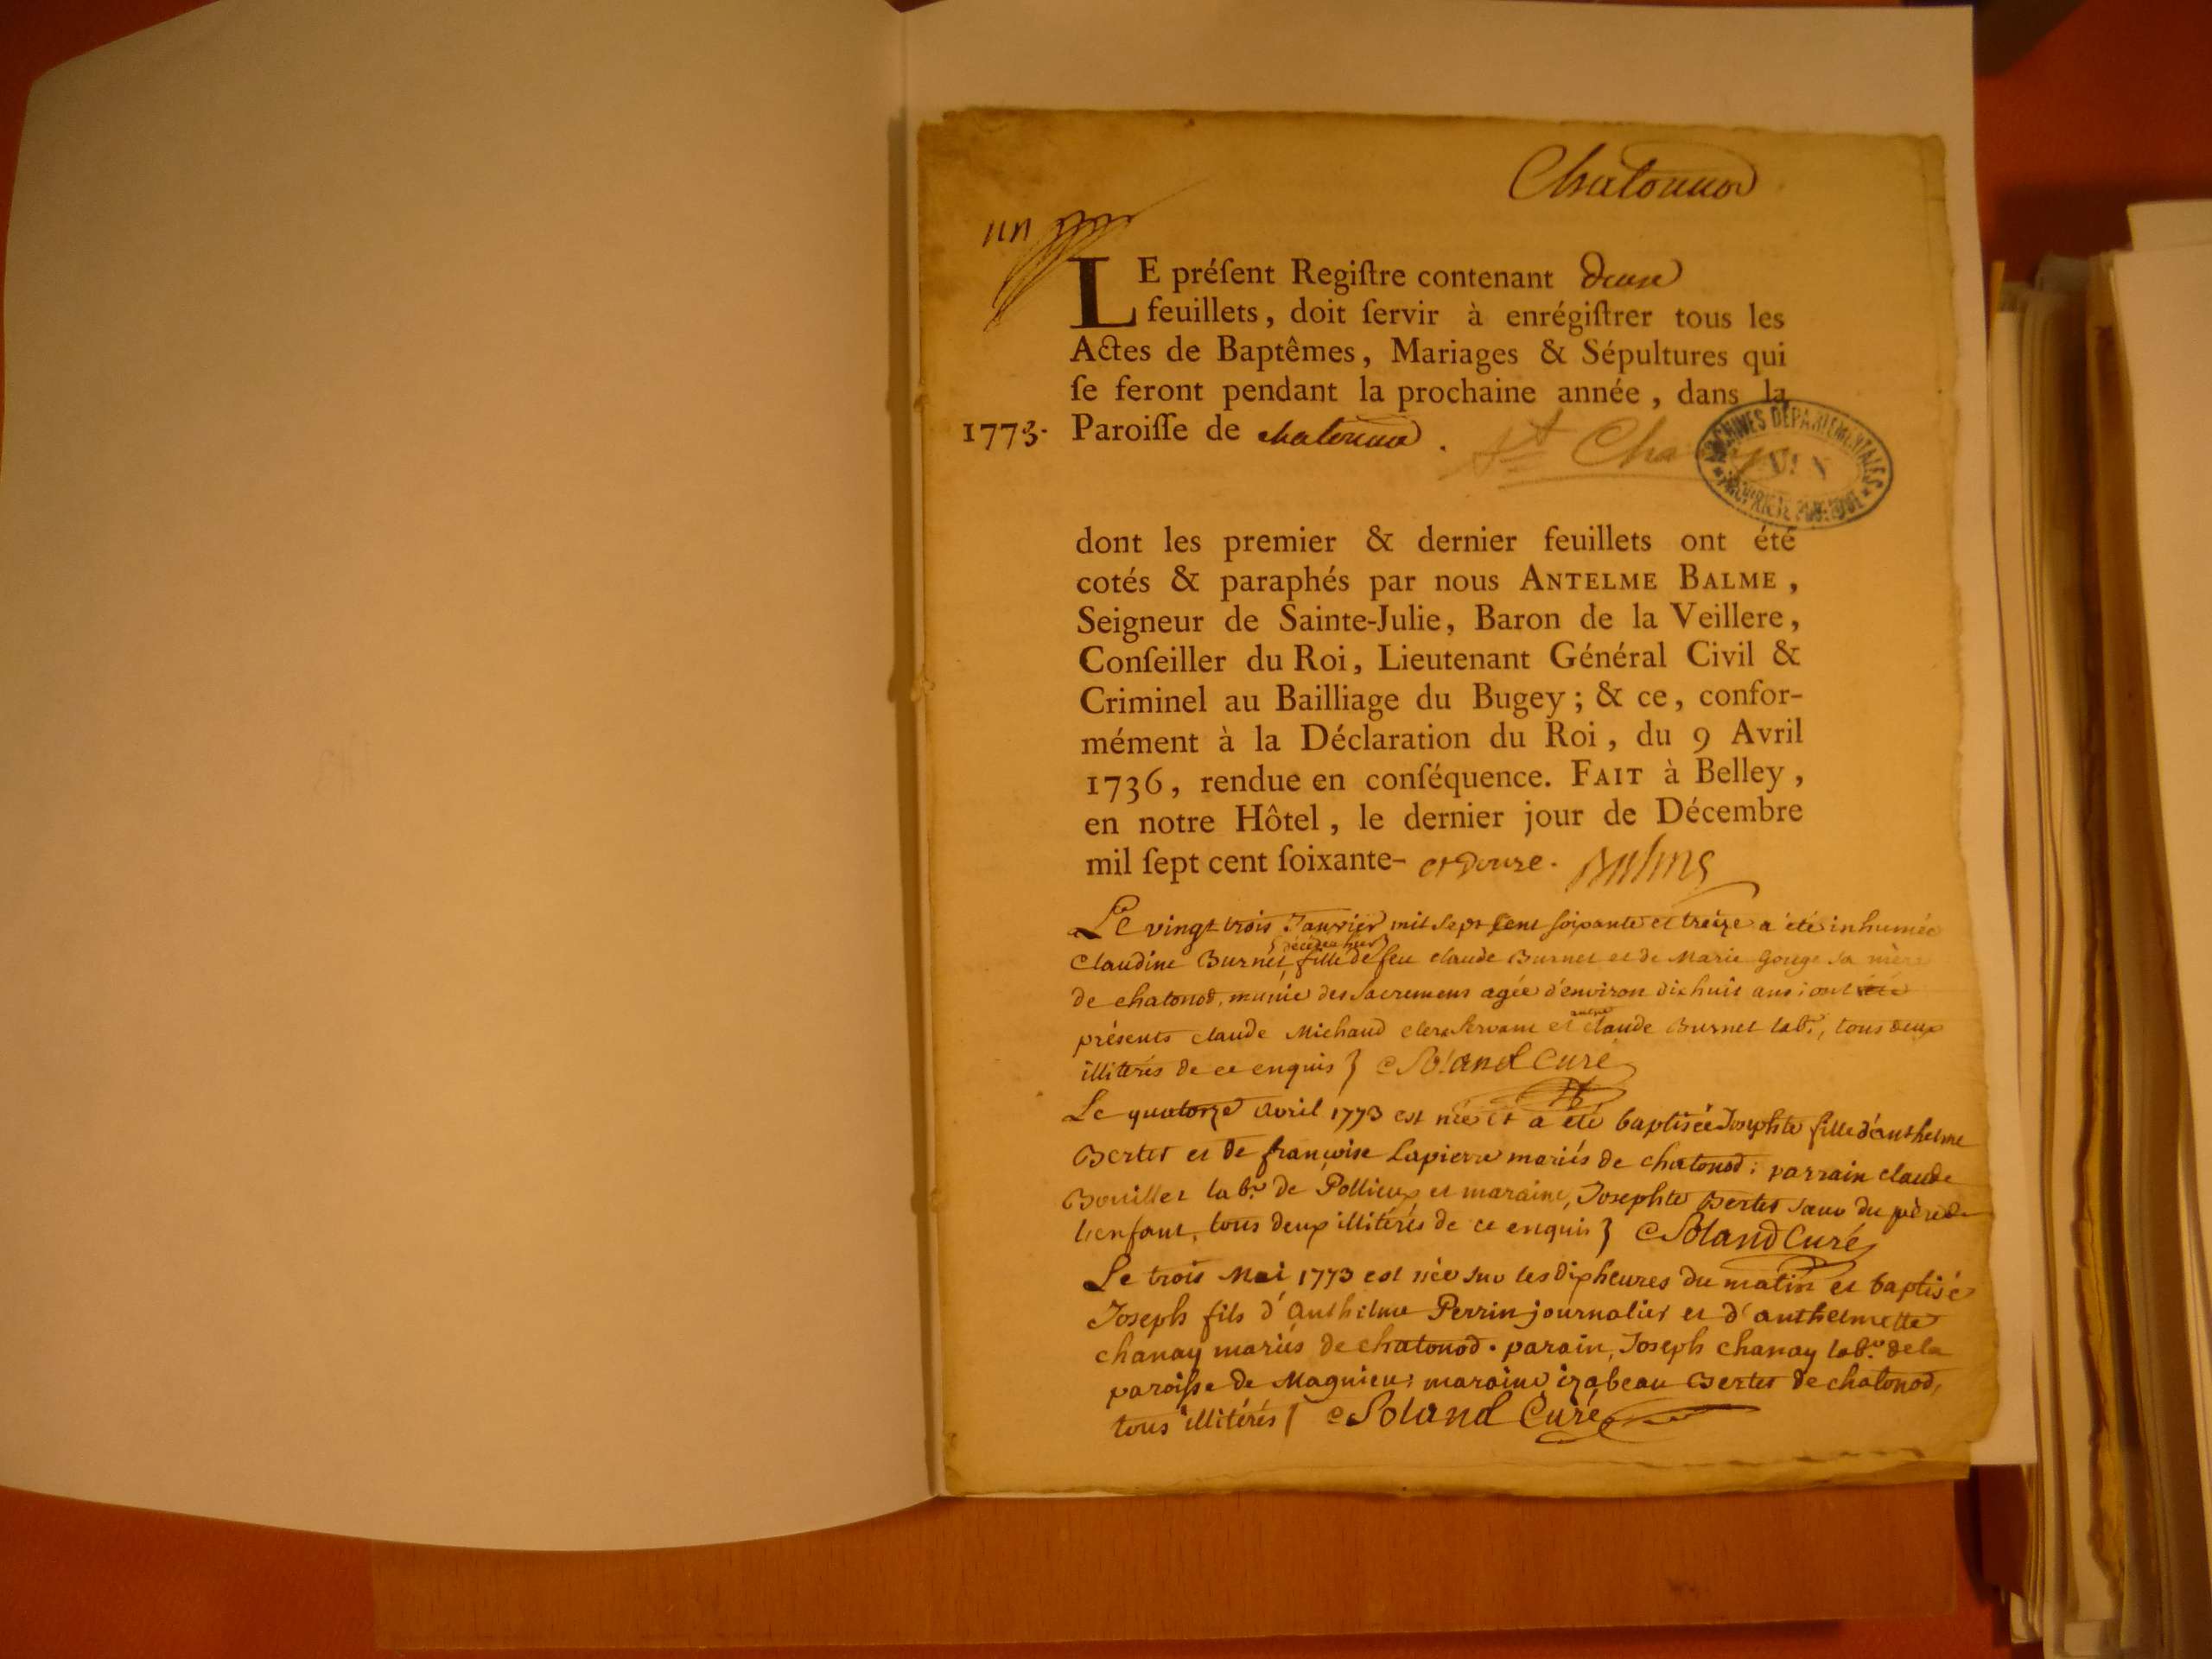 Chatonnod
un
LE préſent Regiſtre contenant deux
feuillets, doit ſervir à enrégiſtrer tous les
Actes de Baptêmes, Mariages & Sépultures qui
ſe feront pendant la prochaine année, dans la
1773. Paroiſſe de chatonnod. St Cha
ARCHIVES DÉPARTEMENTALES AIN
dont les premier & dernier feuillets ont été
cotés & paraphés par nous ANTELME BALME,
Seigneur de Sainte-Julie, Baron de la Veillere,
Conſeiller du Roi, Lieutenant Général Civil &
Criminel au Bailliage du Bugey; & ce, confor-
mément à la Déclaration du Roi, du 9 Avril
1736, rendue en conſéquence. FAIT à Belley,
en notre Hôtel, le dernier jour de Décembre
mil ſept cent ſoixante- et douze. Balme
Le vingt trois Janvier mil sept cent soixante et treize a été inhumée
décédée hier
Claudine Burnet, fille de feu claude Burnet et de Marie Gouge sa mère
de chatonod, munie des sacremens agée d'environ dix huit ans; ont été
présents claude Michaud clerc servant et autre claude Burnet labr, tous deux
illitérés de ce enquis } Soland Curé
Le quatorze avril 1773 est née et a été baptisée Josephte fille d'anthelme
Bertet et de françoise Lapierre mariés de chatonod; parrain claude
Bouillet labr. de Pollieux et maraine, Josephte Bertet sœur du père de
l'enfant, tous deux illitérés de ce enquis } Soland Curé
Le trois Mai 1773 est née sur les dix heures du matin et baptisé
Joseph fils d'Anthelme Perrin journalier et d'anthelmette
chanay mariés de chatonod. parain, Joseph chanay labr. de la
paroisse de Magnieu; maraine izabeau Bertet de chatonod,
tous illitérés } Soland Curé